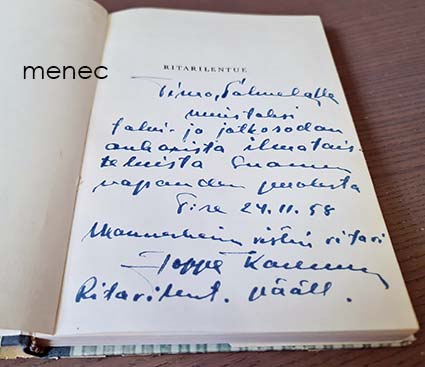 menec
RITARILENTUE
Timo Tähnelälle
muistoksi
talvi- ja jatkosodan
ankarista ilmatais-
teluista Suomen
vapauden puolesta
24.11.58
Mannerheim ristin ritari
Joppe Karhunen
Ritarilent. pääll.